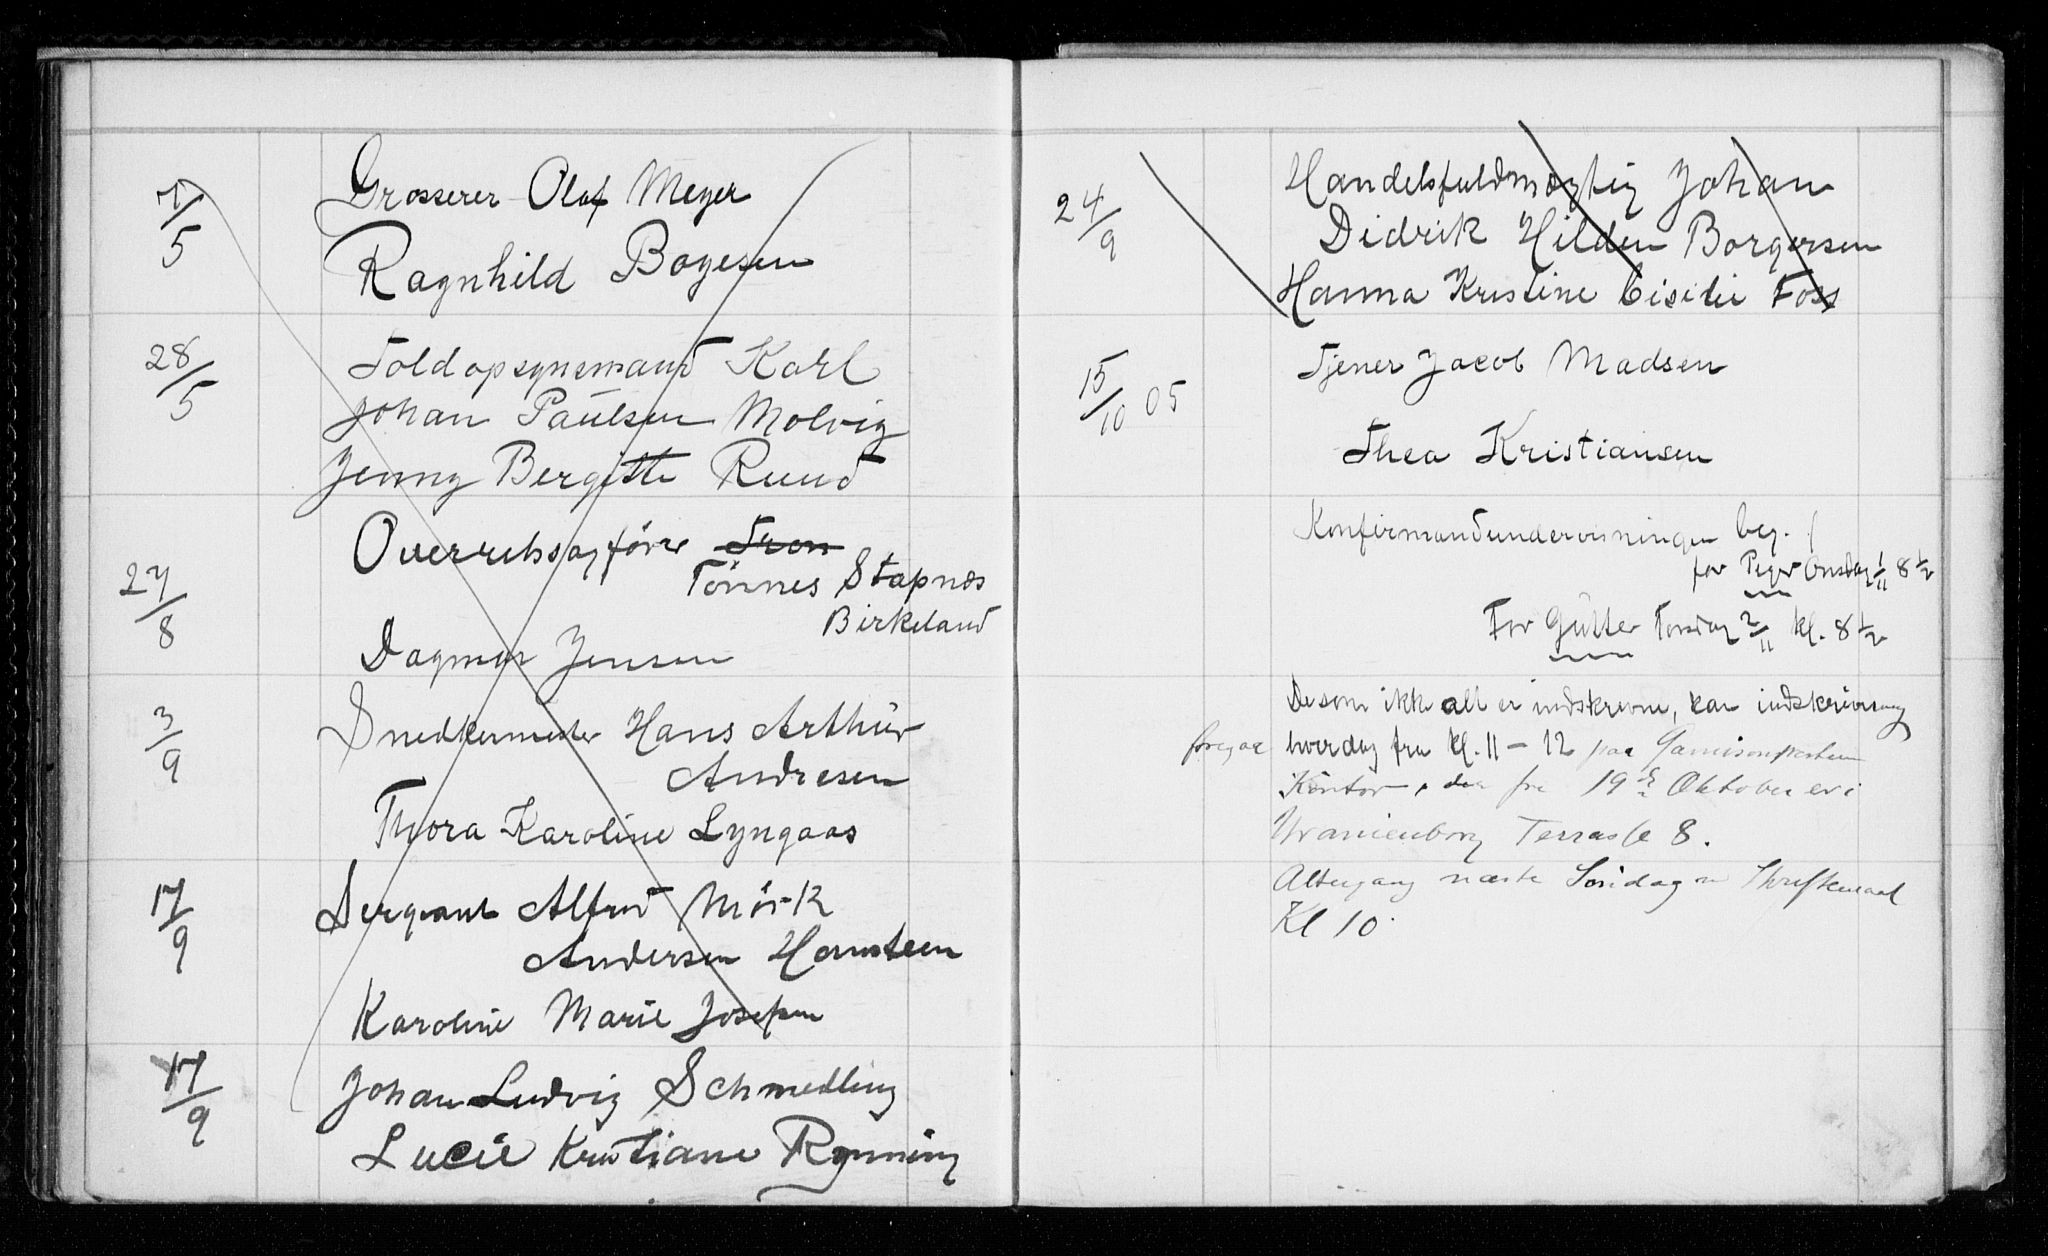 7/5 Grosserer Olaf Meyer
Ragnhild Boyesen
28/5 Toldopsynsmand Karl
Johan Paulsen Molvig
Jenny Bergitte Ruud
Overretssagfører Tron
27/8 Tønnes Stapnes
Birkeland
Dagmar Jensen
3/9 Snedkermester Hans Arthur
Andresen
Thora Karoline Lyngaas
17/9 Sergeant Alfred Mörk
Andersen Hornsteen
Karoline Marie Josefsen
17/9 Johan Ludvig Schmedling
Lucie Kristiane Rynning
24/9 Handelsfuldmægtig Johan
Didrik Hilden Borgersen
Hanna Kristine Foss
15/10 05 Tjener Jacob Madsen
Thea Kristiansen
Konfirmandundervisningen beg.
for Piger Onsdag 1/11 8 1/2
For Gutter Torsdag 2/11 kl. 8 1/2
De som ikke alt er indskrevne, kan indskrivning
foregaa hverdag fra kl. 11 - 12 paa Garnisonspresten
Kontor, der fra 19de Oktober er i
Uranienborg Terrasse 8.
Altergang næste Søndag m Skriftemaal
Kl 10.